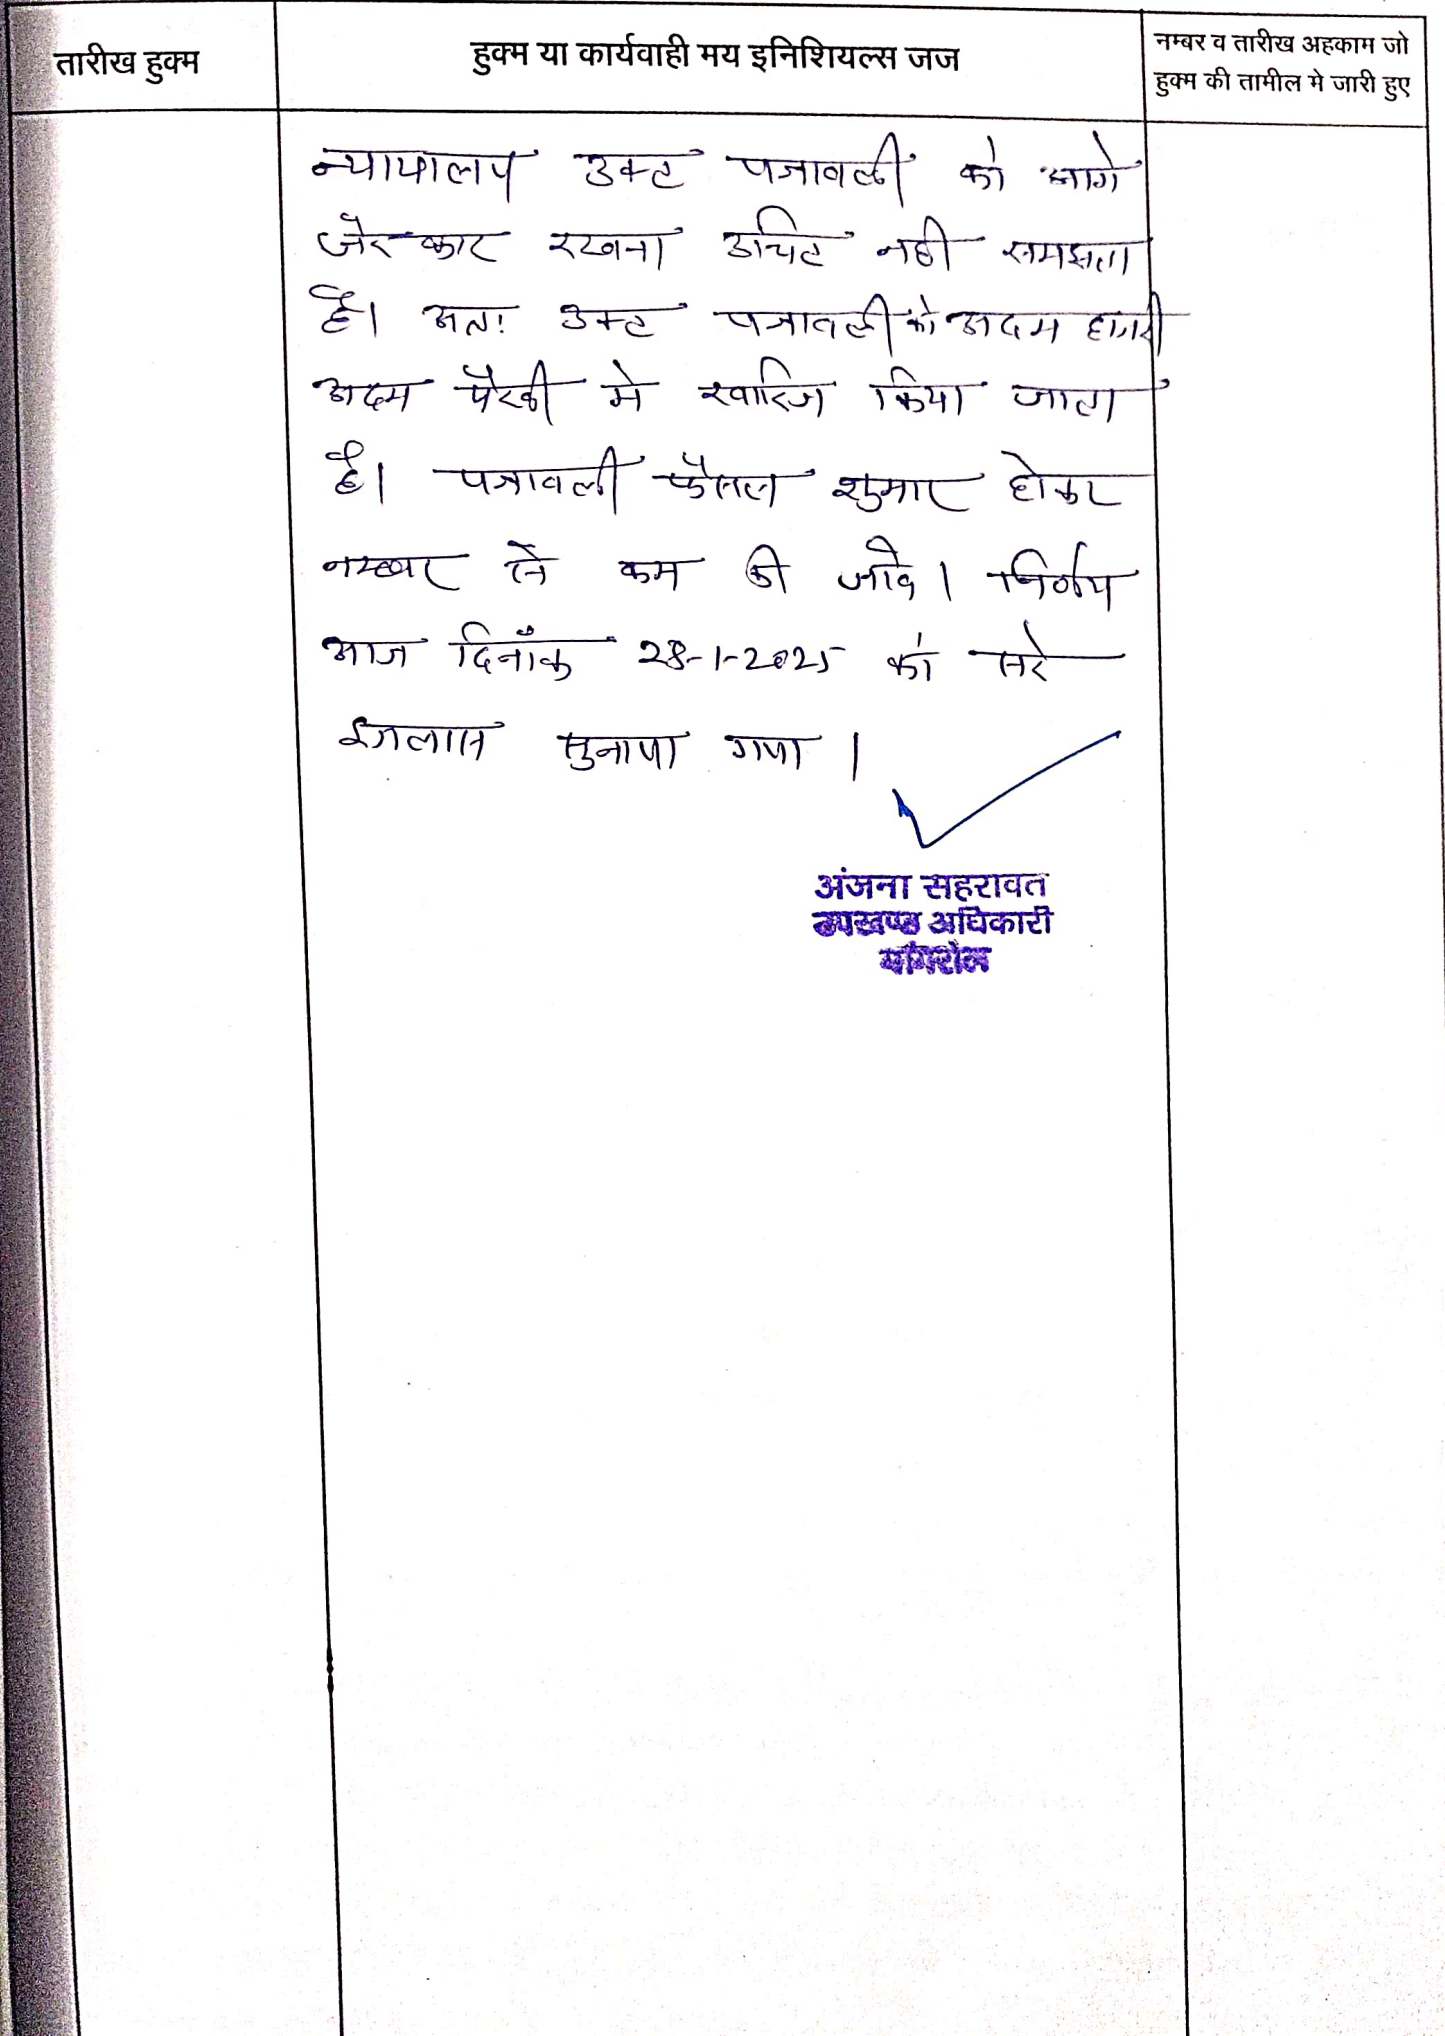 तारीख हुक्म
हुक्म या कार्यवाही मय इनिशियल्स जज
नम्बर व तारीख अहकाम जो
हुक्म की तामील मे जारी हुए
न्यायालय उक्त पत्रावली को आगे
जेरकार रखना उचित नही समझता
है। अतः उक्त पत्रावली को अदम हाजरी
अदम पैरवी मे खारिज किया जाता
है। पत्रावली फैसल शुमार होकर
नम्बर से कम की जावे। निर्णय
आज दिनाँक 28-1-2025 को सरे
इजलास सुनाया गया।
अंजना सहरावत
उपखण्ड अधिकारी
मांगरोल